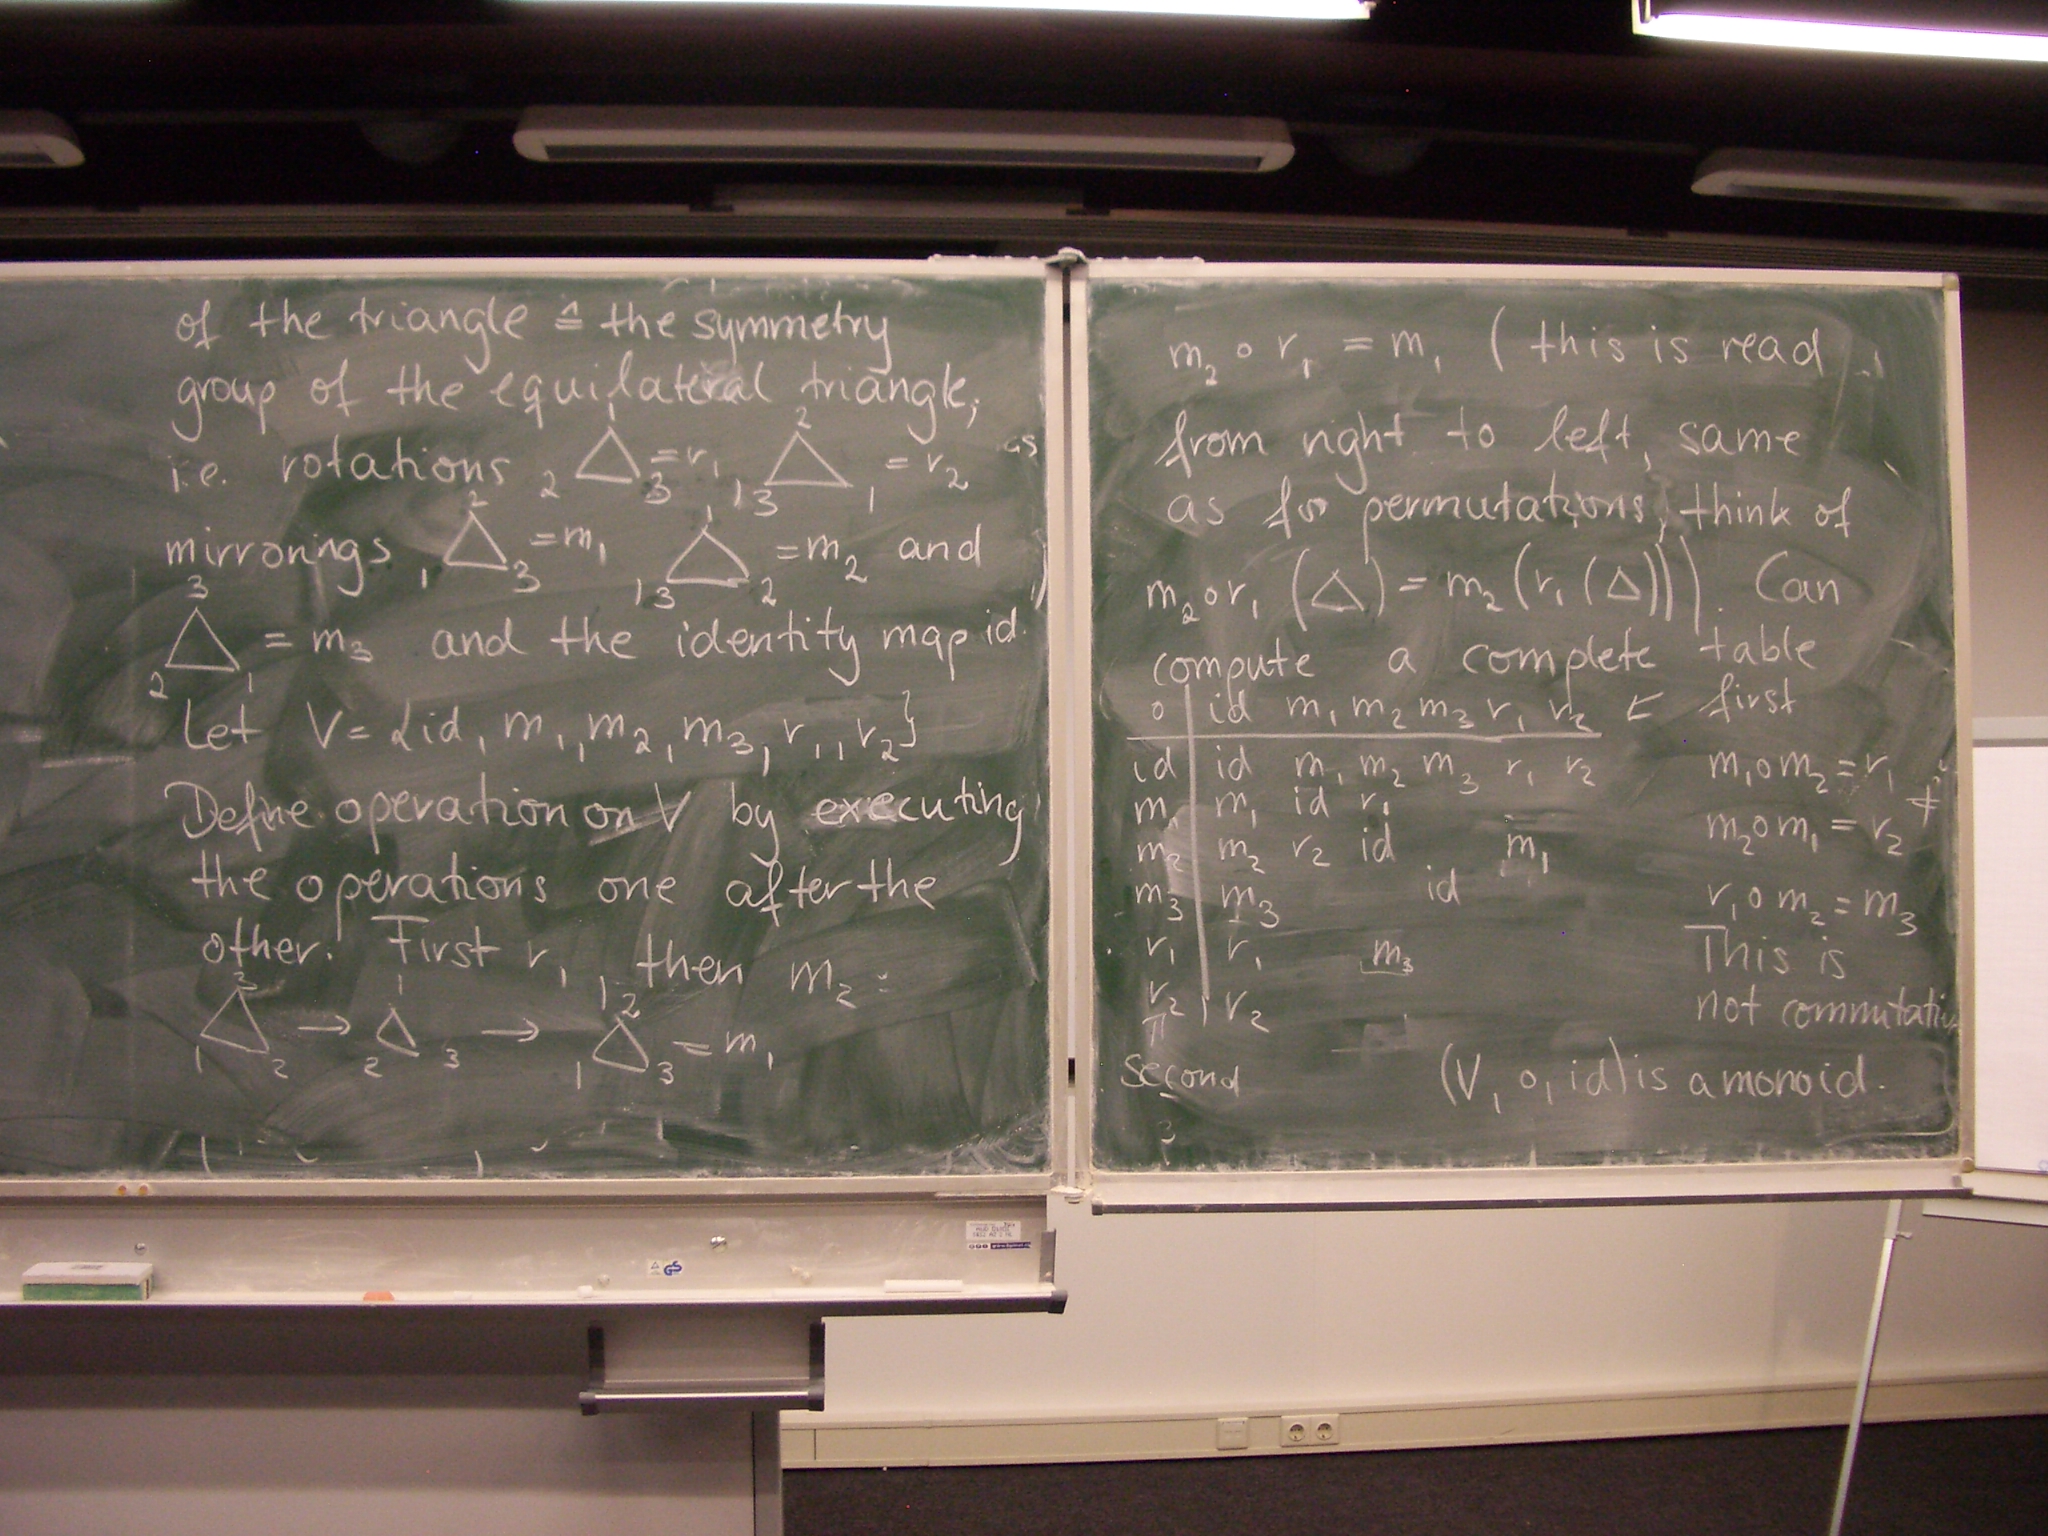 of the triangle ≙ the symmetry
group of the equilateral triangle,
i.e. rotations 1 2 △ 3 = r₁, 2 3 △ 1 = r₂
mirrorings 2 1 △ 3 = m₁, 1 3 △ 2 = m₂ and
3 2 △ 1 = m₃ and the identity map id.
Let V = {id, m₁, m₂, m₃, r₁, r₂}
Define operation on V by executing
the operations one after the
other. First r₁, then m₂:
3 1 △ 2 → 1 2 △ 3 → 2 1 △ 3 = m₁
as
m₂ ∘ r₁ = m₁ (this is read
from right to left, same
as for permutations, think of
m₂∘r₁ (△) = m₂(r₁(△))). Can
compute a complete table
∘ | id m₁ m₂ m₃ r₁ r₂ ← first
id | id m₁ m₂ m₃ r₁ r₂
m₁ | m₁ id r₁
m₂ | m₂ r₂ id m₁
m₃ | m₃ id
r₁ | r₁ m₃
r₂ | r₂
↑
second
m₁∘m₂ = r₁
≠
m₂∘m₁ = r₂
r₁∘m₂ = m₃
This is
not commutativ
(V, ∘, id) is a monoid.